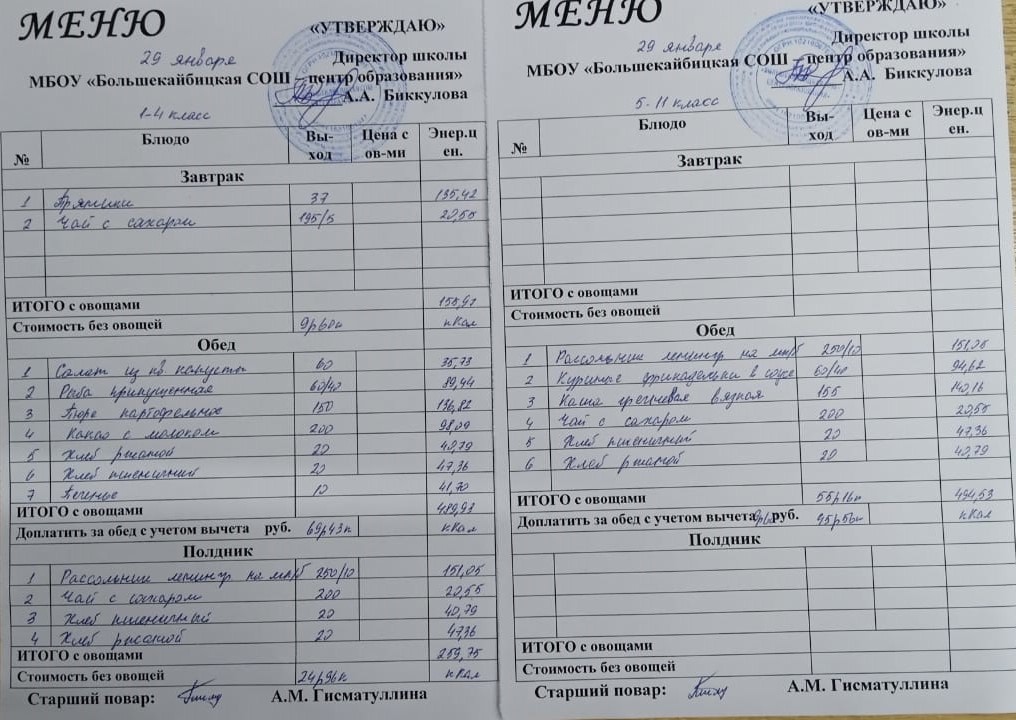 МЕНЮ
«УТВЕРЖДАЮ»
29 января
Директор школы
МБОУ «Большекайбицкая СОШ – центр образования»
А.А. Биккулова
1-4 класс
№ Блюдо Вы-ход Цена с ов-ми Энер.ц ен.
Завтрак
1 Пряники 37 135,42
2 Чай с сахаром 195/5 20,55
ИТОГО с овощами
Стоимость без овощей 9р60к кКал
Обед
1 Салат из кв капусты 60 35,73
2 Рыба припущенная 60/40 89,44
3 Пюре картофельное 150 136,82
4 Какао с молоком 200 98,09
5 Хлеб ржаной 20 40,79
6 Хлеб пшеничный 20 47,36
7 Печенье 10 41,70
ИТОГО с овощами 489,93
Доплатить за обед с учетом вычета руб. 69р43к кКал
Полдник
1 Рассольник ленингр на мк/б 250/10 151,05
2 Чай с сахаром 200 20,55
3 Хлеб пшеничный 20 40,79
4 Хлеб ржаной 20 47,36
ИТОГО с овощами 259,75
Стоимость без овощей 24р96к кКал
Старший повар: А.М. Гисматуллина
МЕНЮ
«УТВЕРЖДАЮ»
29 января
Директор школы
МБОУ «Большекайбицкая СОШ – центр образования»
А.А. Биккулова
5-11 класс
№ Блюдо Вы-ход Цена с ов-ми Энер.ц ен.
Завтрак
ИТОГО с овощами
Стоимость без овощей
Обед
1 Рассольник ленингр на мк/б 250/10 151,05
2 Куриные фрикадельки в соусе 60/40 94,62
3 Каша гречневая вязкая 155 140,16
4 Чай с сахаром 200 20,55
5 Хлеб пшеничный 20 47,36
6 Хлеб ржаной 20 40,79
ИТОГО с овощами 55р16к 494,53
Доплатить за обед с учетом вычета руб. 45р56к кКал
Полдник
ИТОГО с овощами
Стоимость без овощей
Старший повар: А.М. Гисматуллина